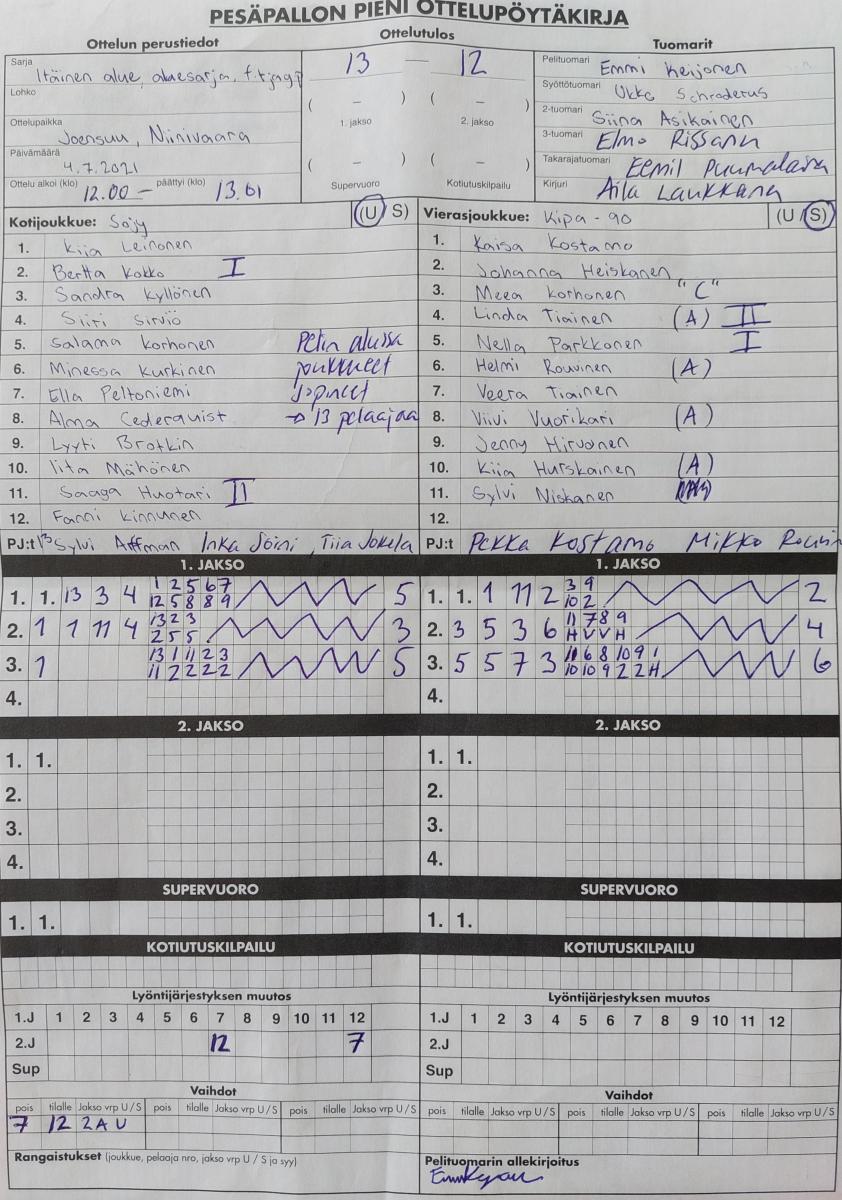 PESÄPALLON PIENI OTTELUPÖYTÄKIRJA
Ottelun perustiedot
Ottelutulos
Tuomarit
Sarja
Itäinen alue, aluesarja,
13 — 12
Pelituomari Emmi Keijonen
Lohko
( – ) ( – )
Syöttötuomari Ukko Schroderus
1. jakso 2. jakso
Ottelupaikka
Joensuu, Niinivaara
2-tuomari Siina Asikainen
3-tuomari Elmo Rissanen
Päivämäärä
4.7.2021
( – ) ( – )
Takarajatuomari Eemil Puumalainen
Ottelu alkoi (klo) 12.00 – päättyi (klo) 13.01
Supervuoro Kotiutuskilpailu
Kirjuri Aila Laukkana
Kotijoukkue: SoJy (U/S)
1. Kiia Leinonen
2. Bertta Kokko I
3. Sandra Kyllönen
4. Siiri Sirviö
5. Salama Korhonen Pelin alussa
6. Minessa Kurkinen joukkueet
7. Ella Peltoniemi sopineet
8. Alma Cederquist → 13 pelaajaa
9. Lyyti Brotkin
10. Iita Mähönen
11. Saaga Huotari II
12. Fanni Kinnunen
PJ:t 13 Sylvi Affman Inka Soini, Tiia Jokela
Vierasjoukkue: Kipa - 90 (U/S)
1. Kaisa Kostamo
2. Johanna Heiskanen
3. Meea Korhonen "C"
4. Linda Tiainen (A) II
5. Nella Parkkonen I
6. Helmi Rouvinen (A)
7. Veera Tiainen
8. Viivi Vuorikari (A)
9. Jenny Hirvonen
10. Kiia Hurskainen (A)
11. Sylvi Niskanen
12.
PJ:t Pekka Kostamo Mikko
1. JAKSO
1. 1. 13 3 4 1 2 5 6 7 5
12 5 8 8 9
2. 1 1 11 4 13 2 3 3
2 5 5
3. 1 13 1 11 2 3 5
11 2 2 2 2
4.
2. JAKSO
1. 1.
2.
3.
4.
SUPERVUORO
1. 1.
KOTIUTUSKILPAILU
1. JAKSO
1. 1. 1 11 2 3 9 2
10 2
2. 3 5 3 6 11 7 8 9 4
H V V H
3. 5 5 7 3 11 6 8 10 9 1 6
10 10 9 2 2 H
4.
2. JAKSO
1. 1.
2.
3.
4.
SUPERVUORO
1. 1.
KOTIUTUSKILPAILU
Lyöntijärjestyksen muutos
1.J 1 2 3 4 5 6 7 8 9 10 11 12
2.J 12 7
Sup
Vaihdot
pois tilalle Jakso vrp U/S pois tilalle Jakso vrp U/S pois tilalle Jakso vrp U/S
7 12 2A U
Rangaistukset (joukkue, pelaaja nro, jakso vrp U / S ja syy)
Lyöntijärjestyksen muutos
1.J 1 2 3 4 5 6 7 8 9 10 11 12
2.J
Sup
Vaihdot
pois tilalle Jakso vrp U/S pois tilalle Jakso vrp U/S pois tilalle Jakso vrp U/S
Pelituomarin allekirjoitus